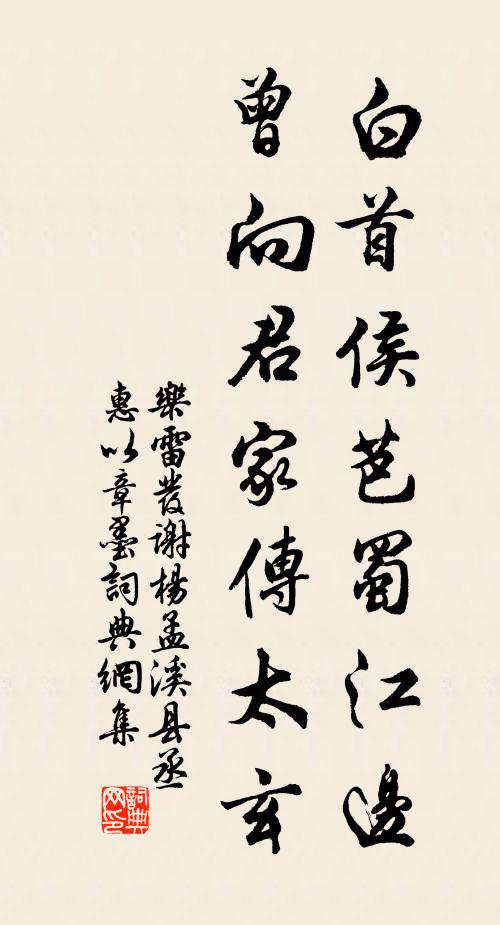 白首侯芭蜀江邊
曾向君家傳太玄
樂雷發謝楊孟溪县丞
惠以章墨詞典網集
詞典网印